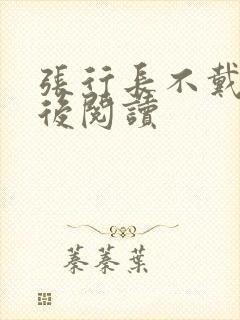 張行長不戴
後閱讀
蓁蓁葉